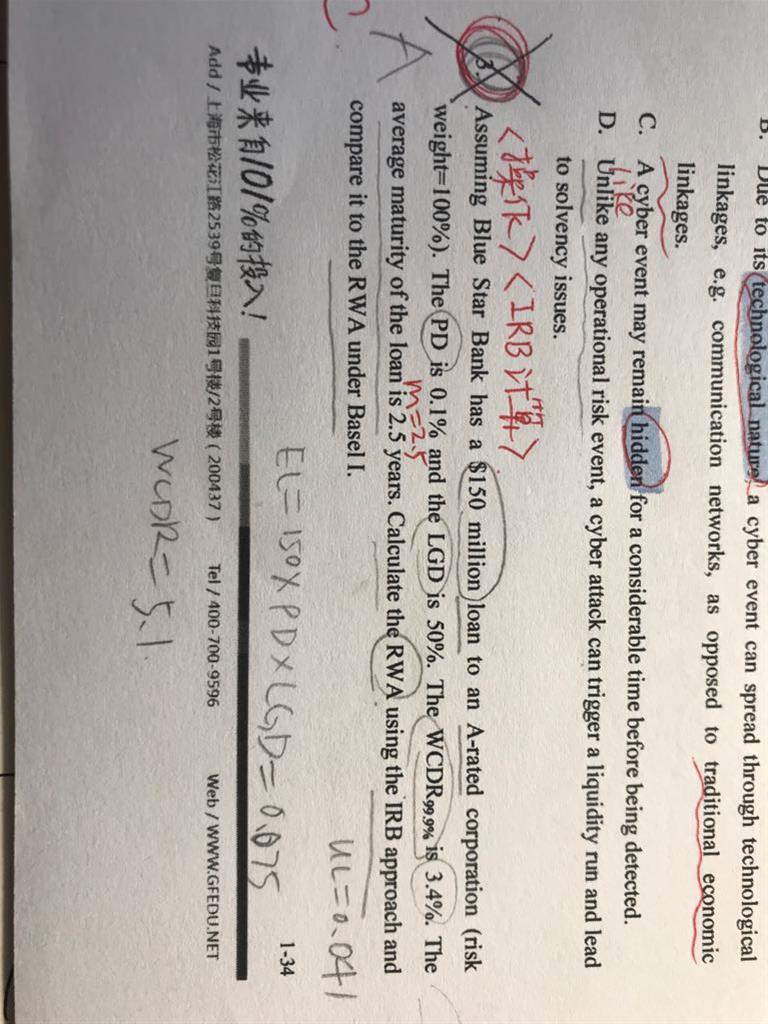 B. Due to its technological nature, a cyber event can spread through technological
linkages, e.g. communication networks, as opposed to traditional economic
linkages.
C. A cyber event may remain hidden for a considerable time before being detected.
like
D. Unlike any operational risk event, a cyber attack can trigger a liquidity run and lead
to solvency issues.
<操风> <IRB计算>
3. Assuming Blue Star Bank has a $150 million loan to an A-rated corporation (risk
weight=100%). The PD is 0.1% and the LGD is 50%. The WCDR99.9% is 3.4%. The
m=2.5
average maturity of the loan is 2.5 years. Calculate the RWA using the IRB approach and
compare it to the RWA under Basel I.
A
C
UL=0.041
EL=150×PD×LGD=0.075
1-34
专业来自101%的投入!
Add / 上海市松花江路2539号复旦科技园1号楼/2号楼 ( 200437 ) Tel / 400-700-9596 Web / WWW.GFEDU.NET
WCDR=5.1